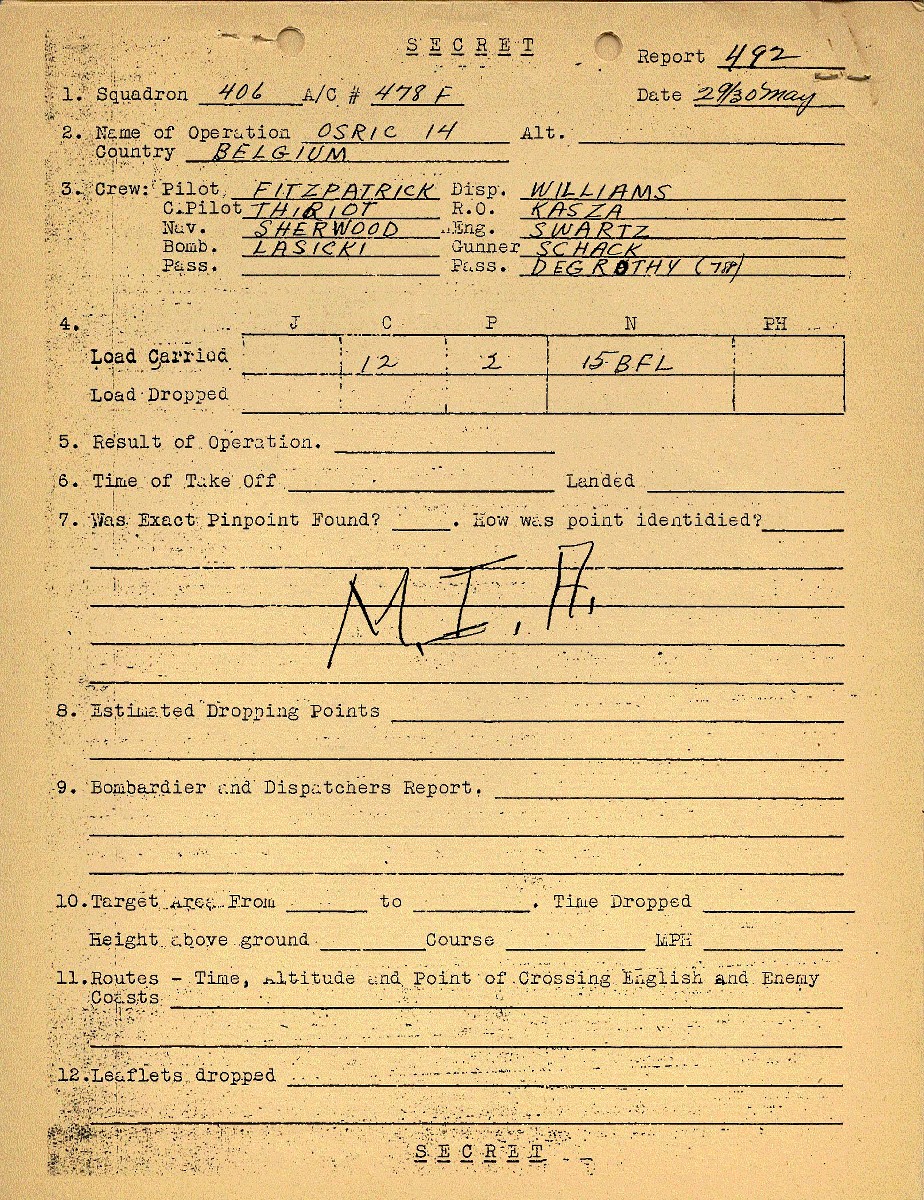 SECRET
Report 492
1. Squadron 406 A/C # 478 F Date 29/30 May
2. Name of Operation OSRIC 14 Alt.
Country BELGIUM
3. Crew: Pilot FITZPATRICK Disp. WILLIAMS
C.Pilot THIRIOT R.O. KASZA
Nav. SHERWOOD Eng. SWARTZ
Bomb. LASICKI Gunner SCHACK
Pass. Pass. DEGROTHY
4. J C P N PH
Load Carried 12 2 15 BFL
Load Dropped
5. Result of Operation.
6. Time of Take Off Landed
7. Was Exact Pinpoint Found? . How was point identidied?
M.I.A.
8. Estimated Dropping Points
9. Bombardier and Dispatchers Report.
10. Target Area From to . Time Dropped
Height above ground Course MPH
11. Routes - Time, Altitude and Point of Crossing English and Enemy
Coasts
12. Leaflets dropped
SECRET